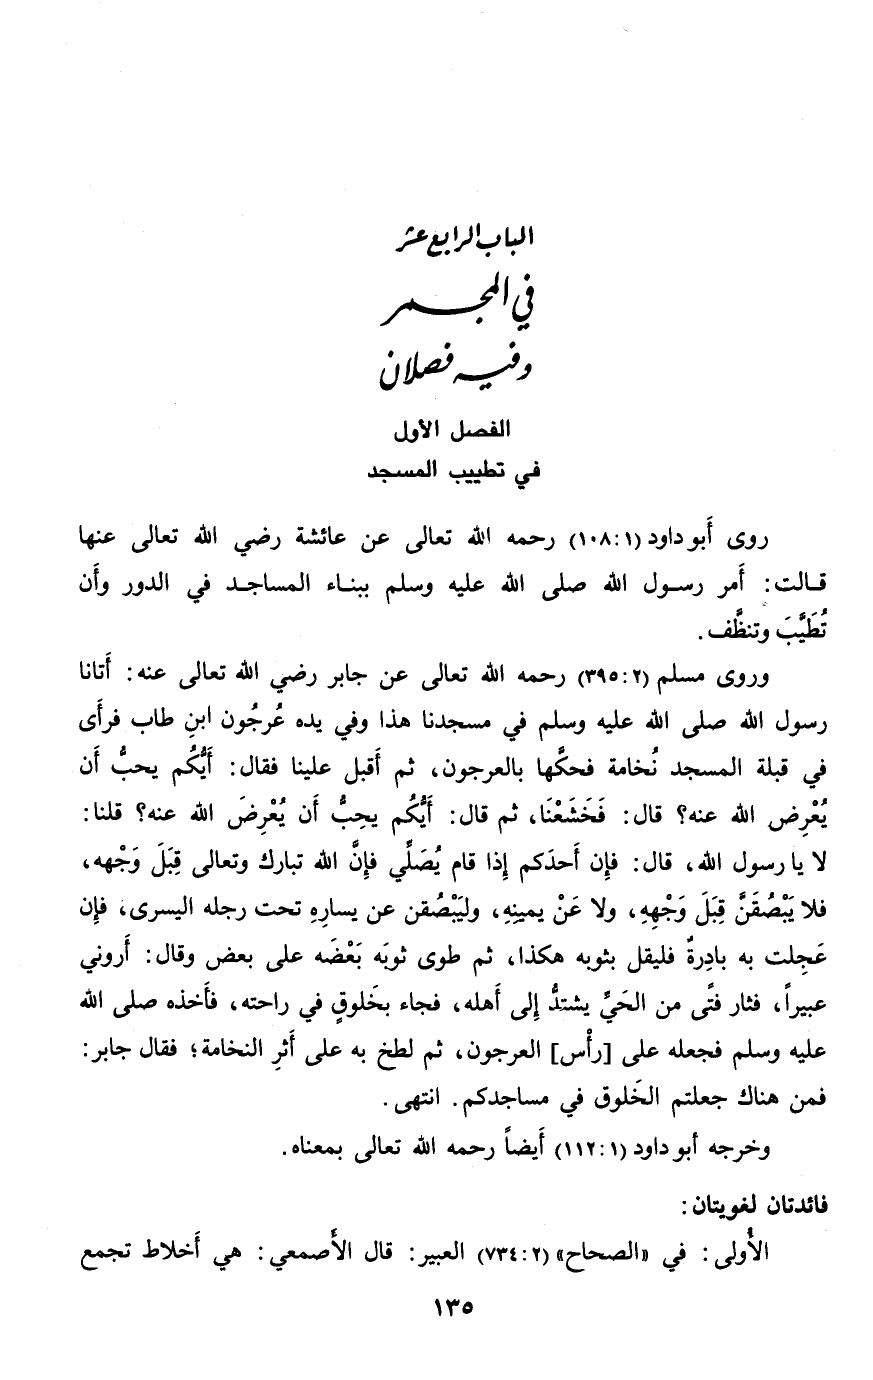 الباب الرابع عشر
في المجمر
وفيه فصلان
الفصل الأول
في تطييب المسجد
روى أَبو داود (١:١٠٨) رحمه الله تعالى عن عائشة رضي الله تعالى عنها
قالت: أَمر رسول الله صلى الله عليه وسلم ببناء المساجد في الدور وأَن
تُطَيَّبَ وتنظَّف.
وروى مسلم (٢:٣٩٥) رحمه الله تعالى عن جابر رضي الله تعالى عنه: أَتانا
رسول الله صلى الله عليه وسلم في مسجدنا هذا وفي يده عُرجُون ابنِ طاب فرأَى
في قبلة المسجد نُخامة فحكَّها بالعرجون، ثم أَقبل علينا فقال: أَيُّكُم يحبُّ أَن
يُعْرِض الله عنه؟ قال: فَخَشَعْنَا، ثم قال: أَيُّكُم يحِبُّ أَن يُعْرِضَ الله عنه؟ قلنا:
لا يا رسول الله، قال: فإِن أَحدَكم إِذا قام يُصَلِّي فإِنَّ الله تبارك وتعالى قِبَلَ وَجْهه،
فلا يَبْصُقَنَّ قِبَلَ وَجْهِهِ، ولا عَنْ يمينِهِ، وليَبْصُقن عن يسارِهِ تحت رجله اليسرى، فإِن
عَجِلت به بادِرةٌ فليقل بثوبه هكذا، ثم طوى ثوبَه بَعْضَه على بعض وقال: أَروني
عبيراً، فثار فتًى من الحَيِّ يشتدُّ إِلى أَهله، فجاء بخَلوقٍ في راحته، فأَخذه صلى الله
عليه وسلم فجعله على [رأْس] العرجون، ثم لطخ به على أَثرِ النخامة؛ فقال جابر:
فمن هناك جعلتم الخَلوق في مساجدكم. انتهى.
وخرجه أبو داود (١:١١٢) أَيضاً رحمه الله تعالى بمعناه.
فائدتان لغويتان:
الأُولى: في «الصحاح» (٢:٧٣٤) العبير: قال الأَصمعي: هي أَخلاط تجمع
١٣٥